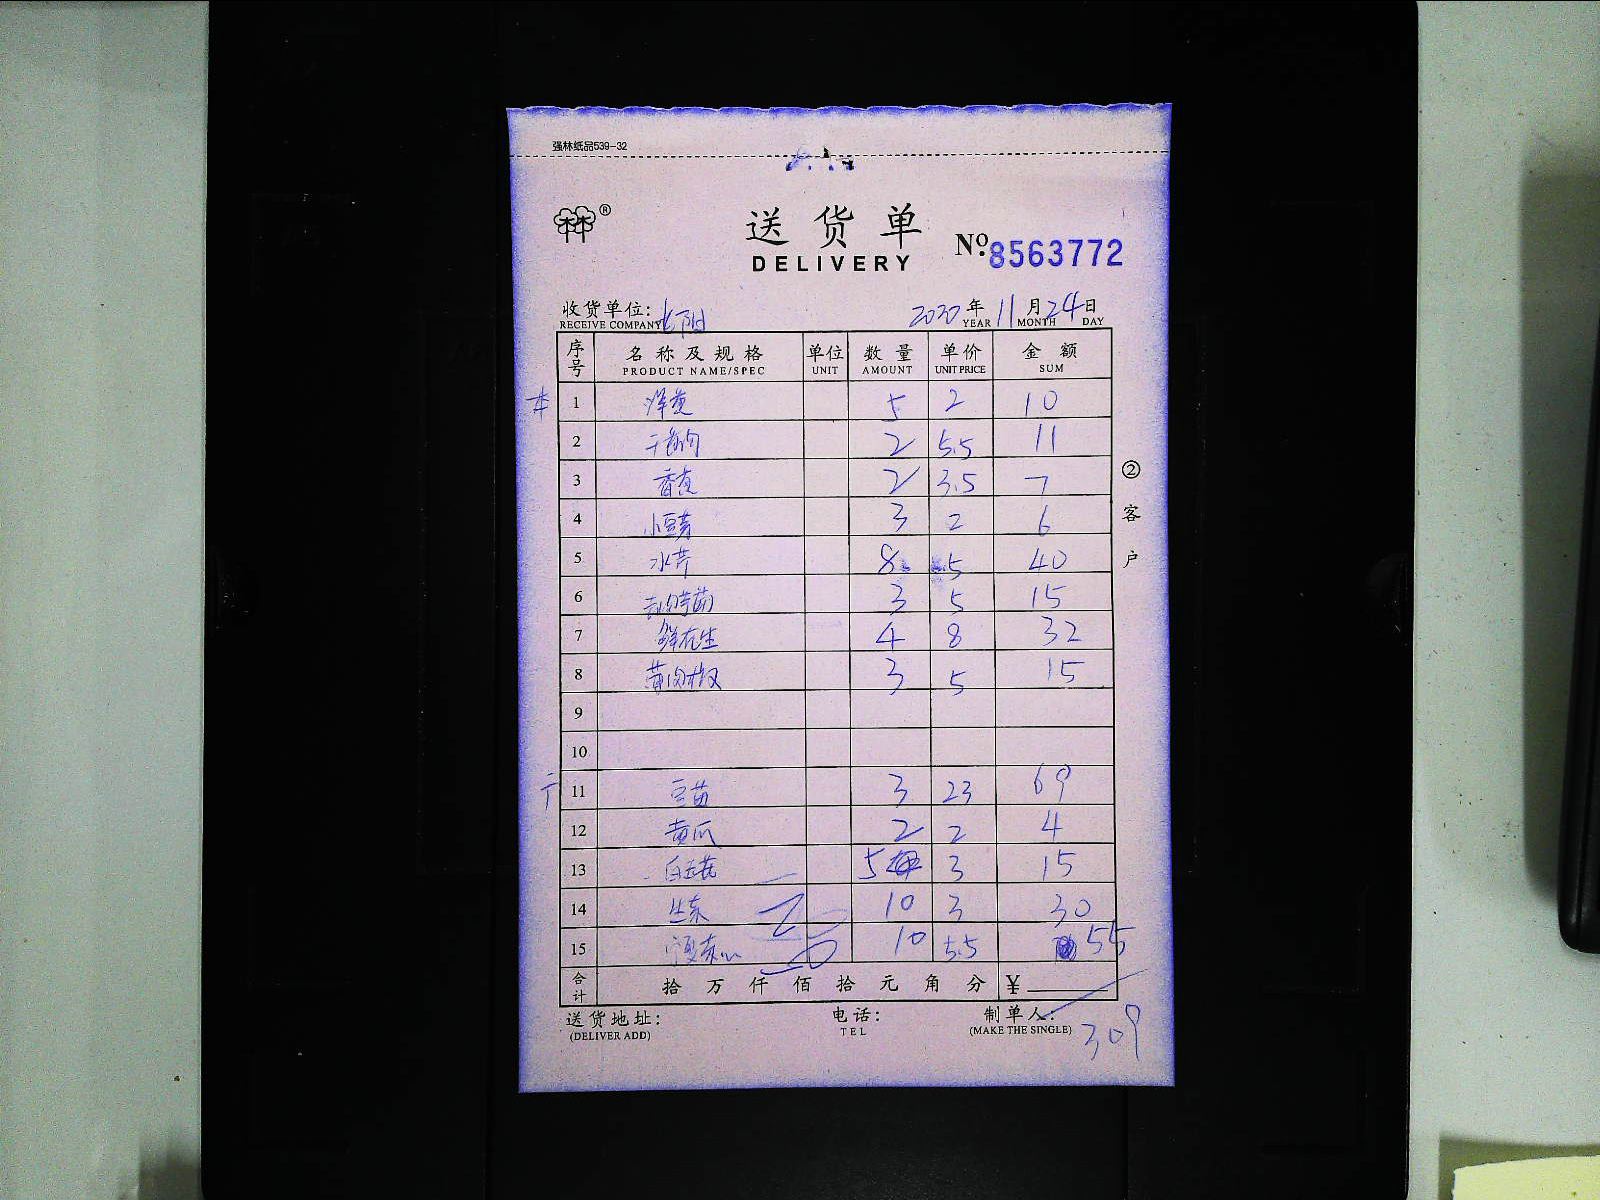 强林纸品539-32
林林®
送货单
DELIVERY
№:8563772
收货单位:
RECEIVE COMPANY
2020年11月24日
YEAR MONTH DAY
序号 名称及规格 单位 数量 单价 金额
PRODUCT NAME/SPEC UNIT AMOUNT UNIT PRICE SUM
1 洋葱 5 2 10
2 2 5.5 11
3 2 3.5 7
4 小豆芽 3 2 6
5 水芹 8 5 40
6 3 5 15
7 鲜花生 4 8 32
8 3 5 15
9
10
11 豆苗 3 23 69
12 黄瓜 2 2 4
13 5 3 15
14 生菜 10 3 30
15 10 5.5 55
合计 拾万仟佰拾元角分 ¥
②客户
送货地址:
(DELIVER ADD)
电话:
TEL
制单人:
(MAKE THE SINGLE)
309